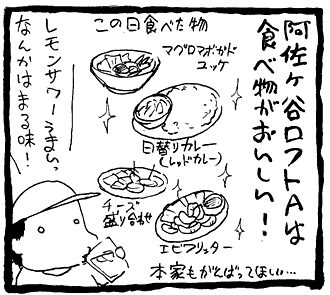 阿佐ヶ谷ロフトAは
食べ物がおいしい!
この日食べた物
マグロアボカド
ユッケ
日替りカレー
(レッドカレー)
チーズ
盛り合わせ
エビフリッター
レモンサワーうまいっ
なんかはまる味!
本家もがんばってほしい…